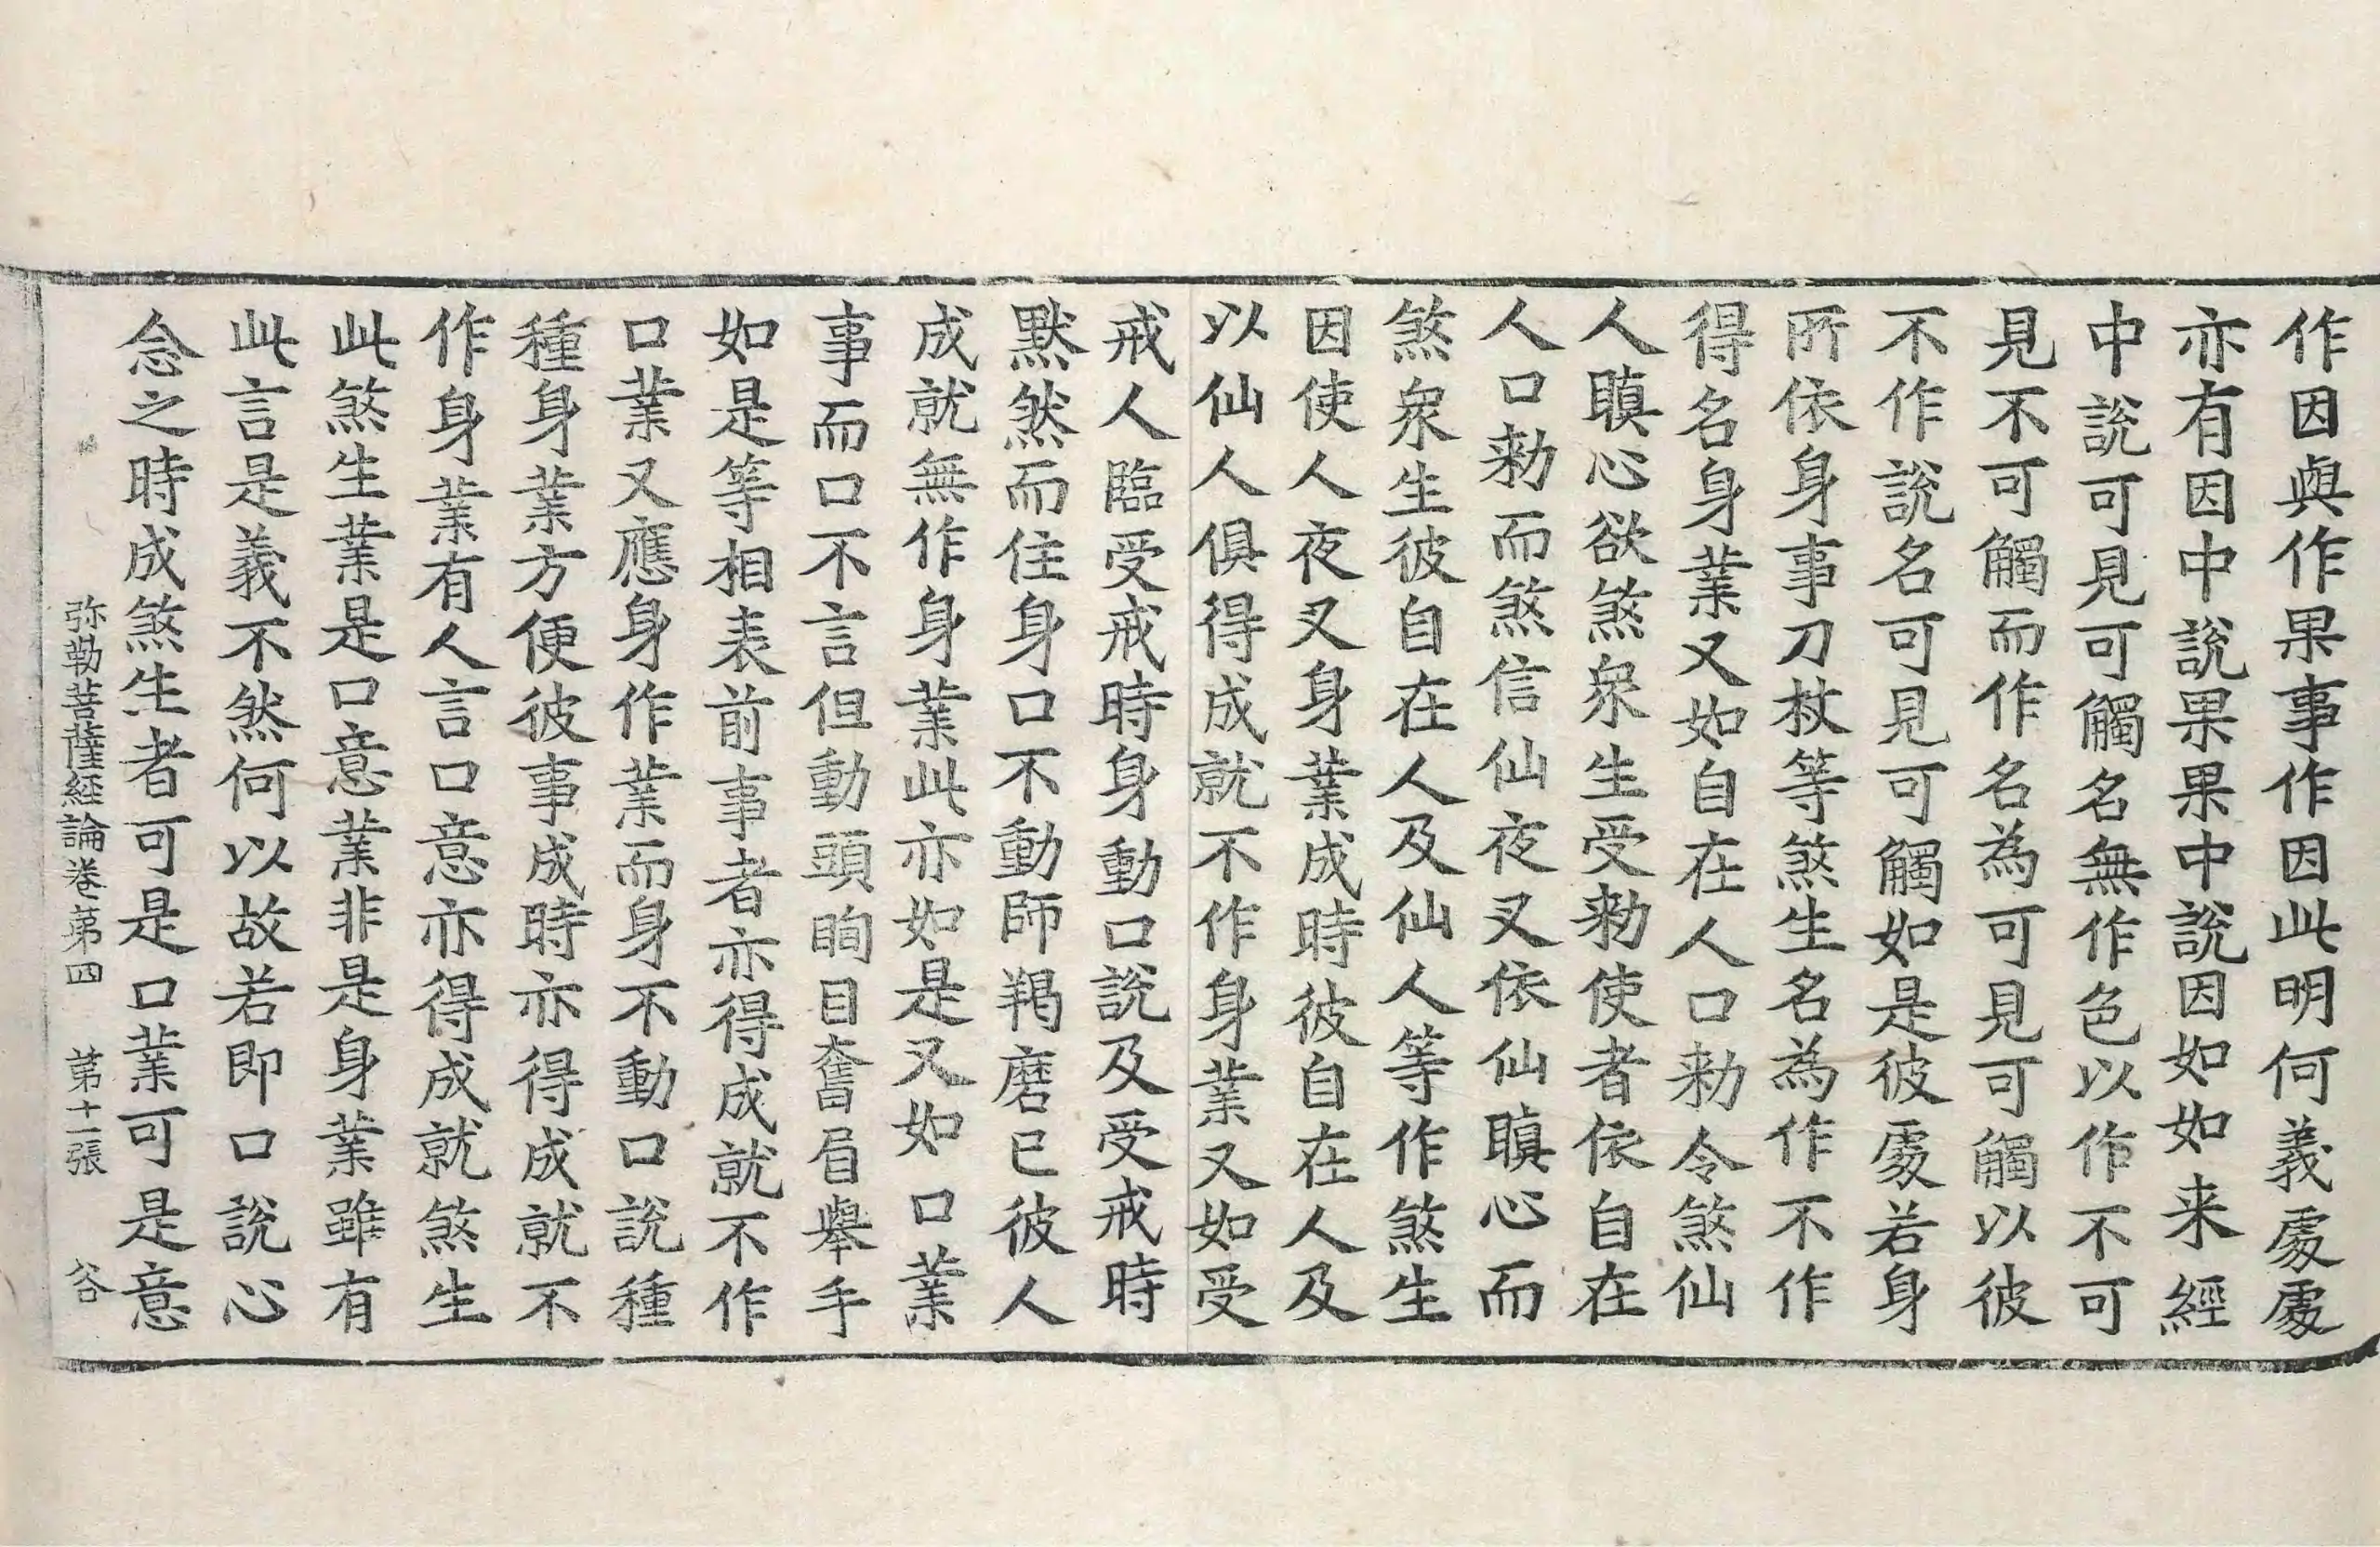 作因與作果事作因此明何義處處
亦有因中說果果中說因如如来經
中說可見可觸名無作色以作不可
見不可觸而作名為可見可觸以彼
不作說名可見可觸如是彼處若身
所依身事刀杖等煞生名為作不作
得名身業又如自在人口勑令煞仙
人瞋心欲煞衆生受勑使者依自在
人口勑而煞信仙夜叉依仙瞋心而
煞衆生彼自在人及仙人等作煞生
因使人夜叉身業成時彼自在人及
以仙人俱得成就不作身業又如受
戒人臨受戒時身動口說及受戒時
默然而住身口不動師羯磨已彼人
成就無作身業此亦如是又如口業
事而口不言但動頭眴目奮眉舉手
如是等相表前事者亦得成就不作
口業又應身作業而身不動口說種
種身業方便彼事成時亦得成就不
作身業有人言口意亦得成就煞生
此煞生業是口意業非是身業雖有
此言是義不然何以故若即口說心
念之時成煞生者可是口業可是意
弥勒菩薩経論卷第四 第十一張 谷